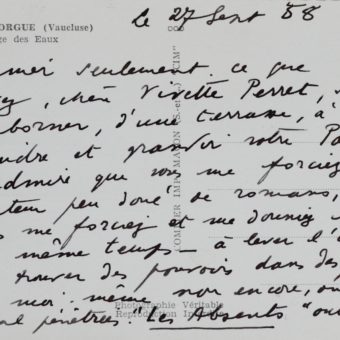 ORGUE (Vaucluse)
ge des Eaux
Le 27 Sept 58
mer seulement ce que
, chère Vivette Perret,
borner, d'une terrasse, à
et grandir votre Pa
admire que vous me forciez
teur peu doué de romans,
s me forciez et me donniez
même temps - à lever l'
trouver des pouvoirs dans des
moi-même non encore, ou
al pénétrées. "Les Absents" ou
COMBIER IMP. MACON (S.-et-L.) "CIM"
Photographie Véritable
Reproduction Inter